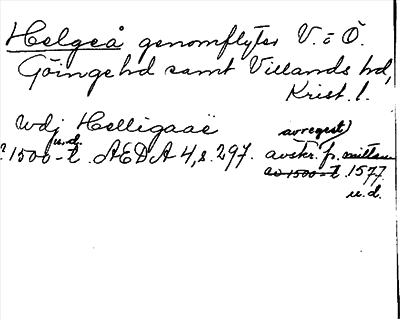 Helgeå genomflyter V. o Ö.
Göinge hd samt Villands hd,
Krist. l.
wdj Helligaaë
u.d. avregest)
? 1500-t. AEDA 4, s. 297. avskr. fr. mitten
av 1500-t 1577
u.d.